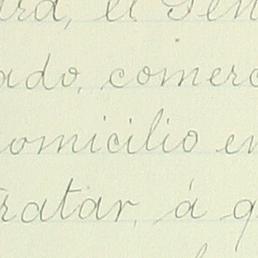 el
ado, comerc
omicilio en
ratar, á q